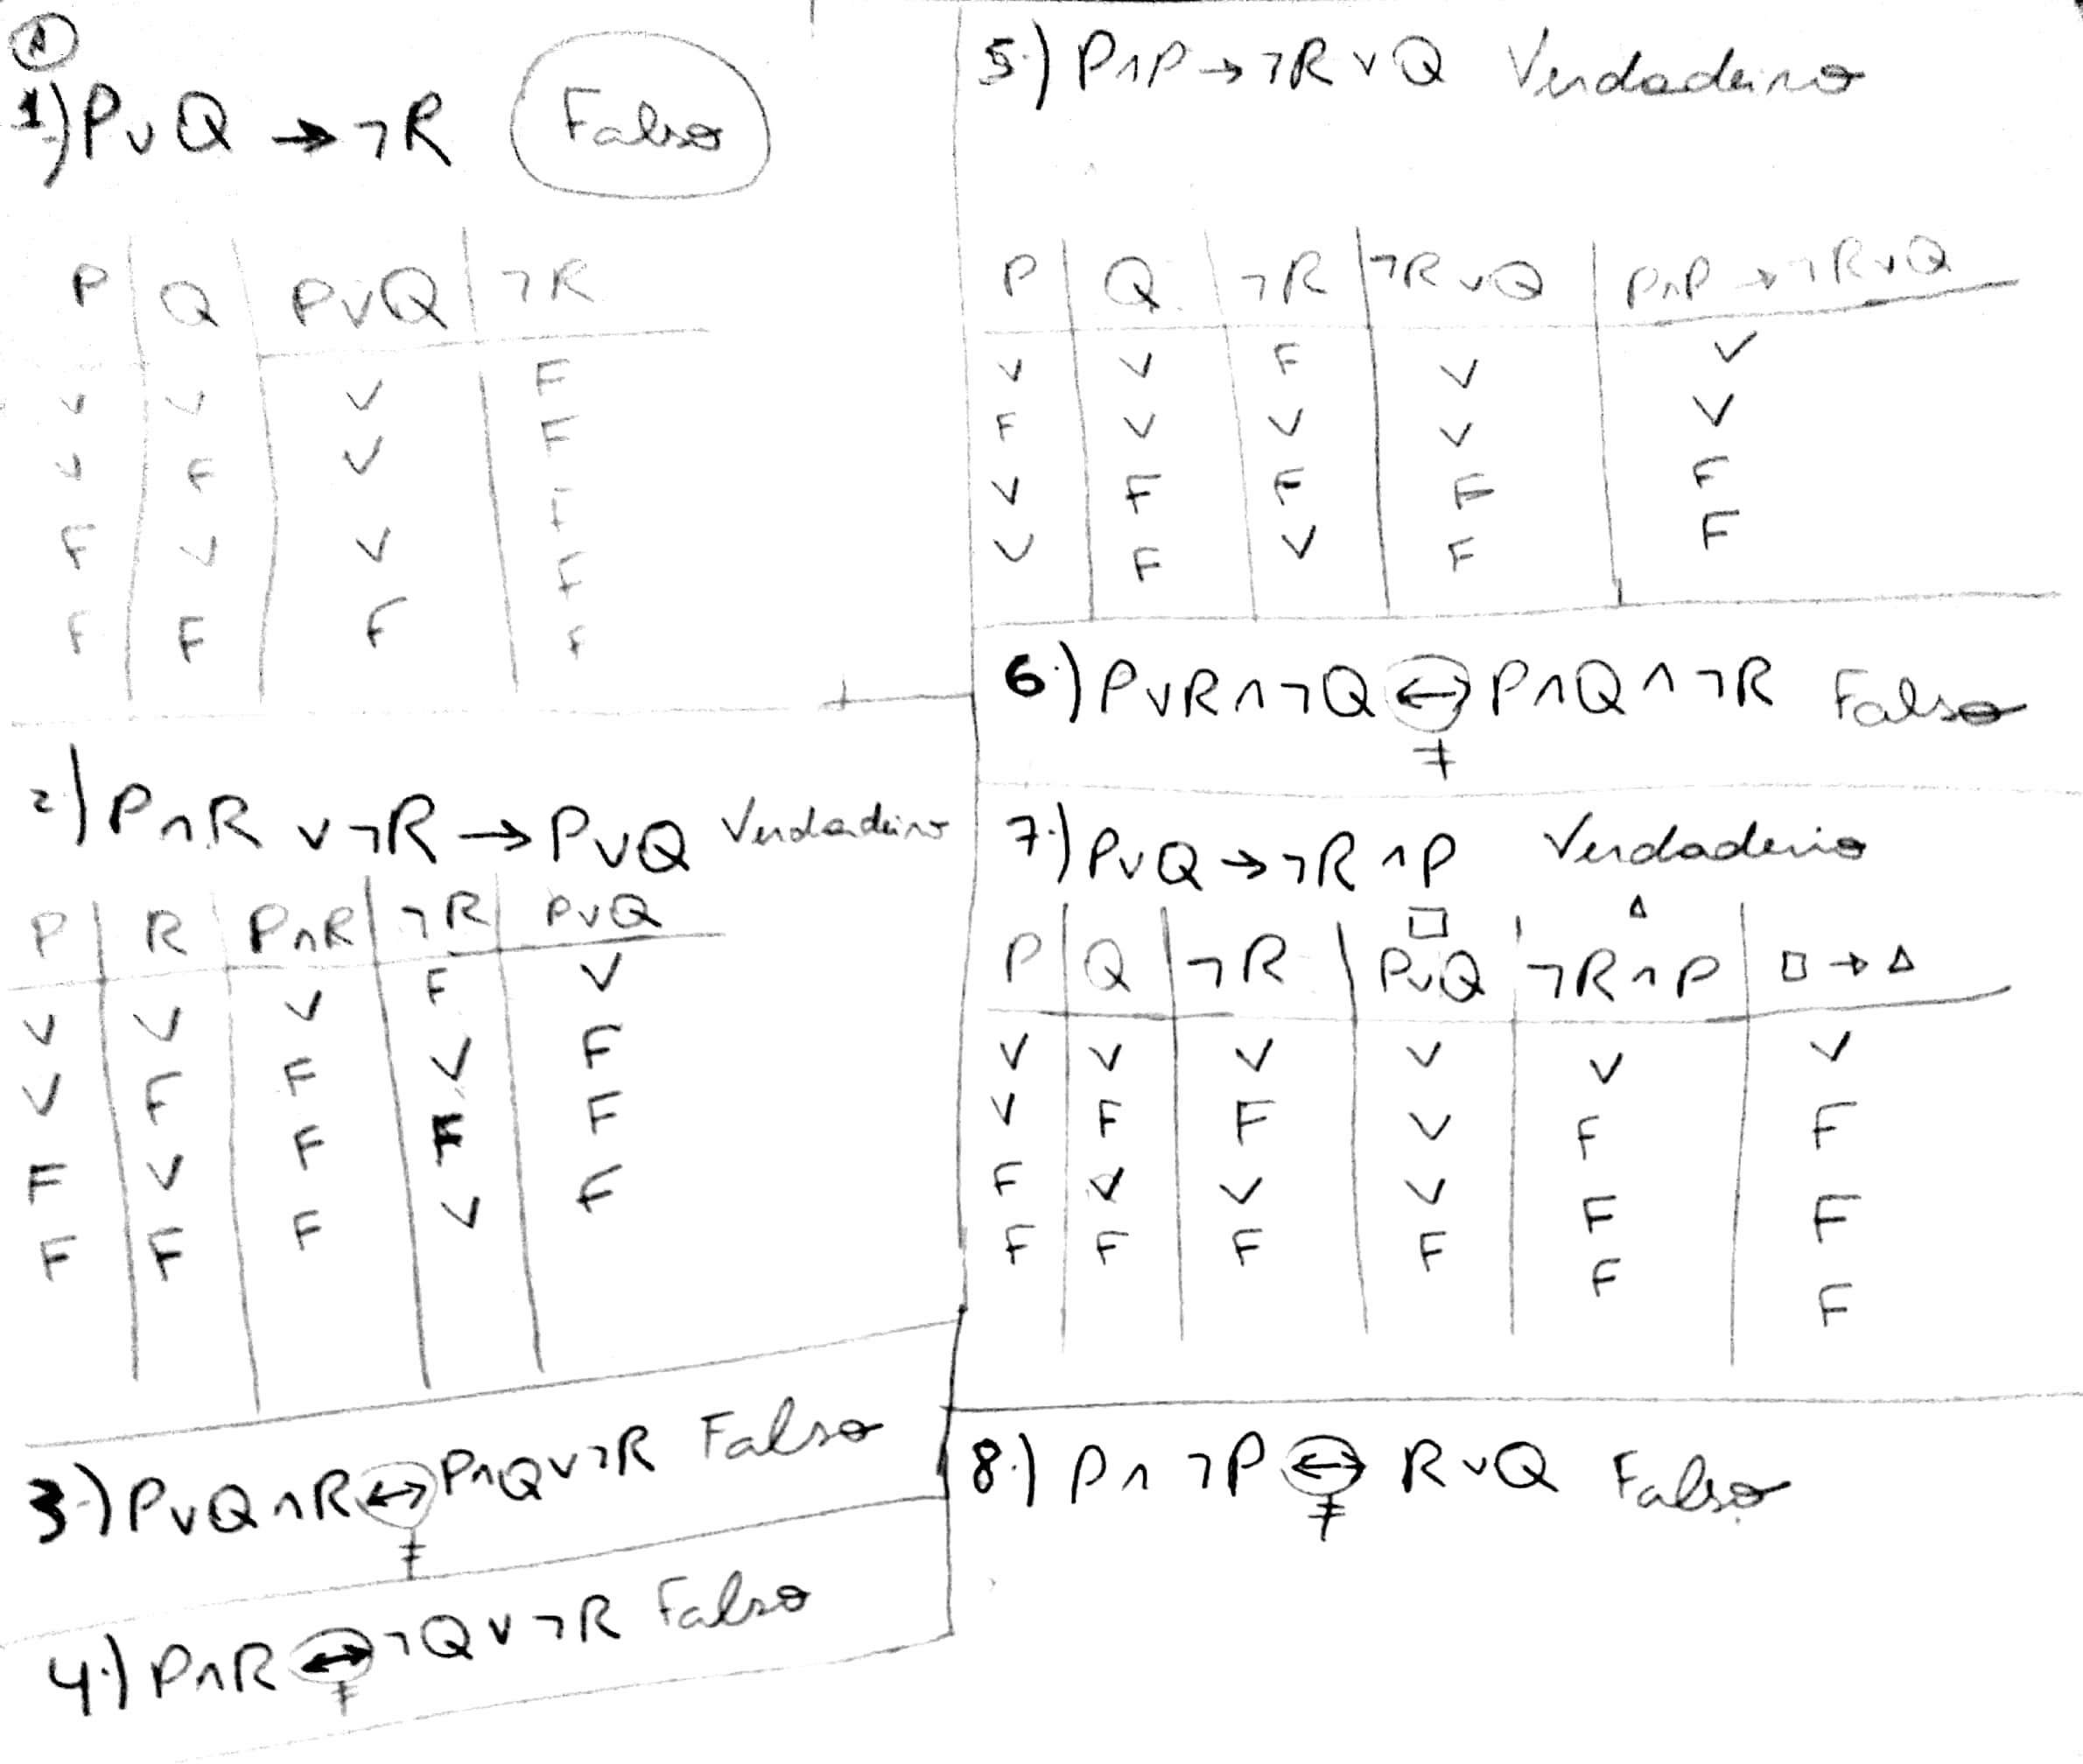 ①
1) P∨Q → ¬R Falso
P Q P∨Q ¬R
V V V F
V F V F
F V V F
F F F F
2) P∧R ∨ ¬R → P∨Q Verdadeiro
P R P∧R ¬R P∨Q
V V V F V
V F F V F
F V F F F
F F F V F
3.) P∨Q∧R ↔ P∧Q∨¬R Falso
≠
4.) P∧R ↔ ¬Q∨¬R Falso
≠
5.) P∧P → ¬R∨Q Verdadeiro
P Q ¬R ¬R∨Q P∧P → ¬R∨Q
V V F V V
F V V V V
V F F F F
V F V F F
6.) P∨R∧¬Q ↔ P∧Q∧¬R Falso
≠
7.) P∨Q → ¬R∧P Verdadeiro
□ △
P Q ¬R P∨Q ¬R∧P □→△
V V V V V V
V F F V F F
F V V V F F
F F F F F F
8.) P∧¬P ↔ R∨Q Falso
≠